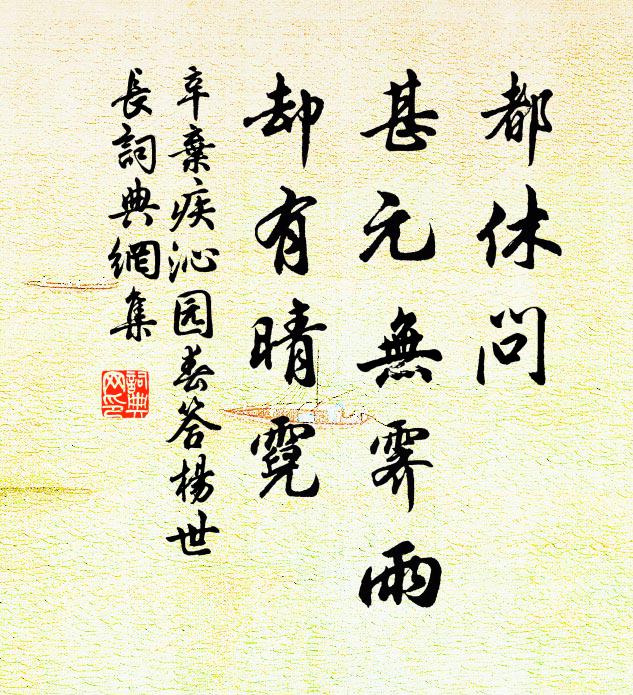 都休问
甚元無霁雨
却有晴霓
辛棄疾沁园春答楊世
長詞典網集
詞典
网